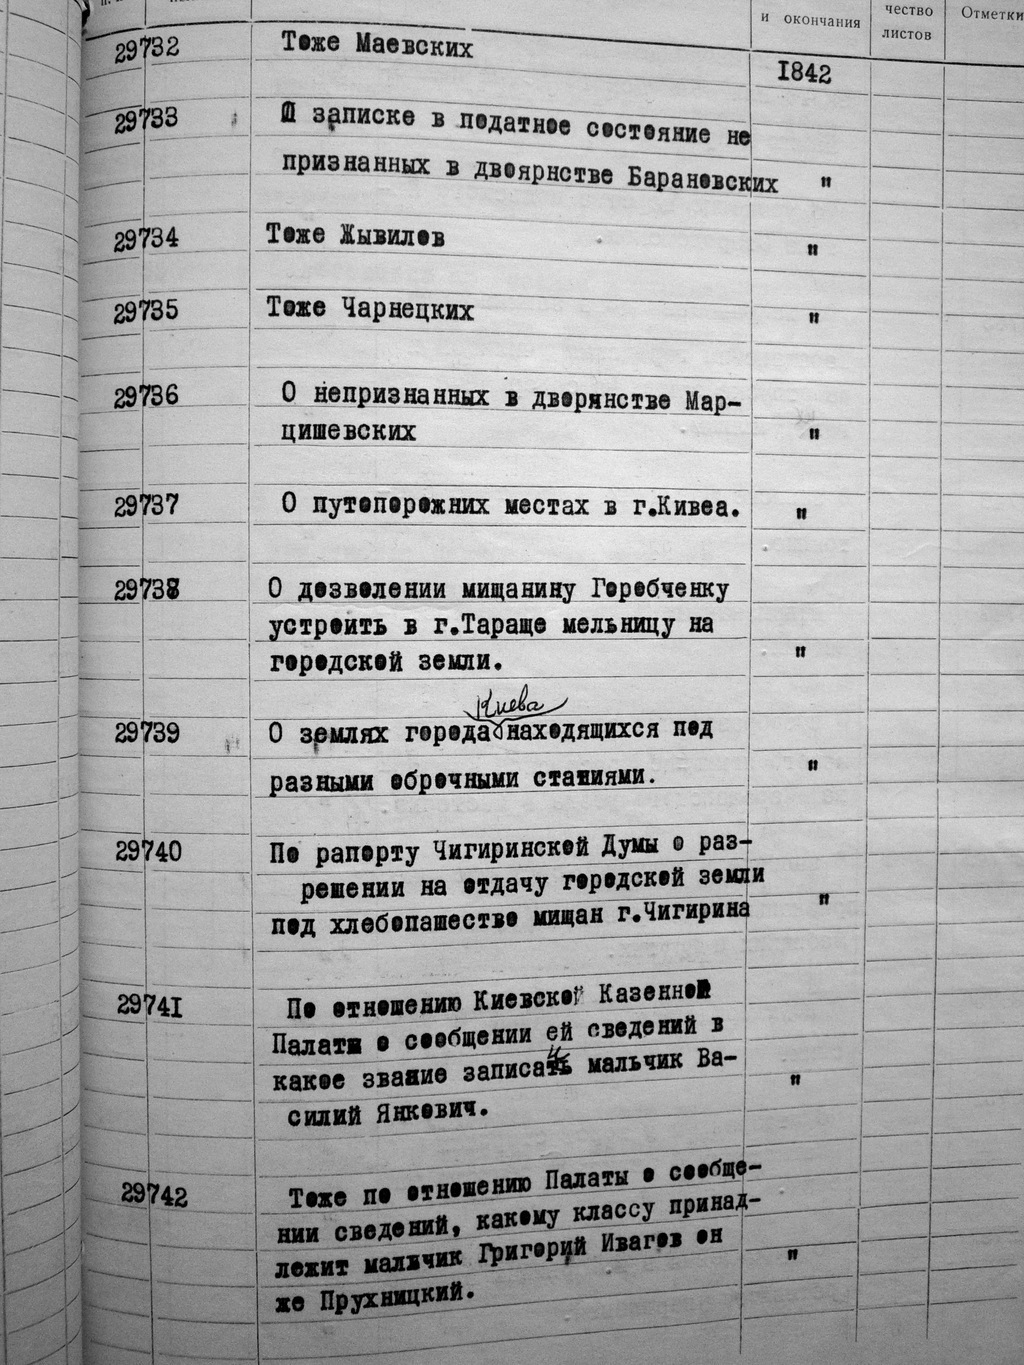 и окончания
чество
листов
Отметки
29732 Тоже Маевских
1842
29733 О записке в податное состояние не
признанных в двоярнстве Барановских "
29734 Тоже Жывилов "
29735 Тоже Чарнецких "
29736 О непризнанных в дворянстве Мар-
цишевских "
29737 О путопорожних местах в г.Кивеа. "
29738 О дозволении мищанину Горобченку
устроить в г.Тараще мельницу на
городской земли. "
Киева
29739 О землях города находящихся под
разными оброчными станиями. "
29740 По рапорту Чигиринской Думы о раз-
решении на отдачу городской земли
под хлебопашество мищан г.Чигирина "
29741 По отношению Киевской Казенной
Палаты о сообщении ей сведений в
какое звание записан мальчик Ва-
силий Янкович. "
29742 Тоже по отношению Палаты о сообще-
нии сведений, какому классу принад-
лежит мальчик Григорий Ивагов он
же Прухницкий. "